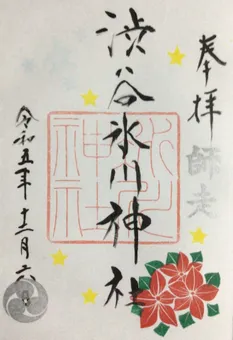 奉拝
師走
渋谷氷川神社
氷川
神社
令和五年十二月六日